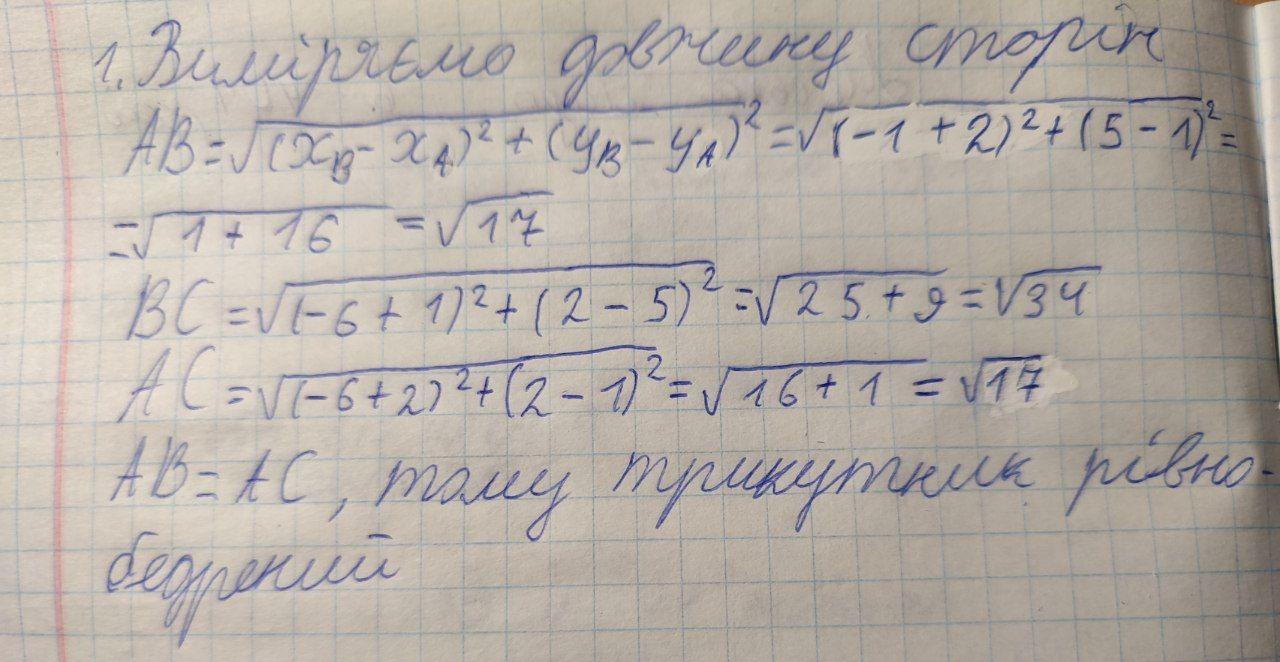 1. Виміряємо довжину сторін
AB = √(x_B - x_A)² + (y_B - y_A)² = √(-1 + 2)² + (5 - 1)² =
= √1 + 16 = √17
BC = √(-6 + 1)² + (2 - 5)² = √25 + 9 = √34
AC = √(-6 + 2)² + (2 - 1)² = √16 + 1 = √17
AB = AC, тому трикутник рівно-
бедрений